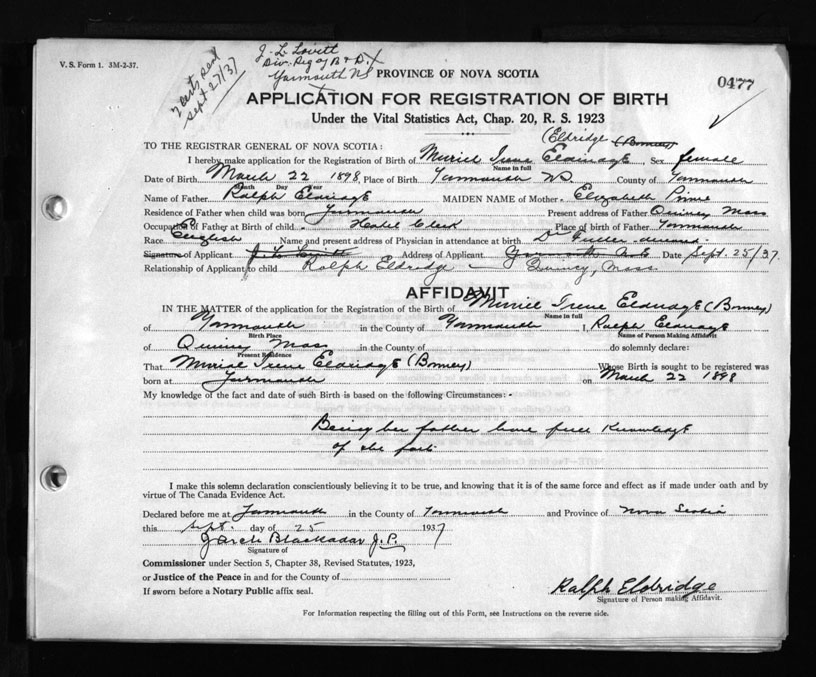 V. S. Form 1. 3M-2-37.
Sept 27/37
J. L. Lovitt
Div. Reg of B & D.
Yarmouth NS
PROVINCE OF NOVA SCOTIA
0477
APPLICATION FOR REGISTRATION OF BIRTH
Under the Vital Statistics Act, Chap. 20, R. S. 1923
(Eldridge (Bonney)
TO THE REGISTRAR GENERAL OF NOVA SCOTIA:
I hereby make application for the Registration of Birth of Muriel Irene Eldridge Sex female
Name in full
Date of Birth March 22 1898, Place of Birth Yarmouth NS. County of Yarmouth
Month Day Year
Name of Father Ralph Eldridge MAIDEN NAME of Mother Elizabeth Prime
Residence of Father when child was born Yarmouth Present address of Father Quincy Mass
Occupation of Father at Birth of child Hotel Clerk Place of birth of Father Yarmouth
Race English Name and present address of Physician in attendance at birth Dr Fuller deceased
Signature of Applicant Address of Applicant Date Sept. 25/37.
Relationship of Applicant to child Ralph Eldridge — Quincy, Mass.
AFFIDAVIT
IN THE MATTER of the application for the Registration of the Birth of Muriel Irene Eldridge (Bonney)
Name in full
of Yarmouth in the County of Yarmouth I, Ralph Eldridge
Birth Place Name of Person Making Affidavit
of Quincy Mass in the County of do solemnly declare:
Present Residence
That Muriel Irene Eldridge (Bonney) Whose Birth is sought to be registered was
born at Yarmouth on March 22 1898
My knowledge of the fact and date of such Birth is based on the following Circumstances: -
Being her father have full Knowledge
of the fact
I make this solemn declaration conscientiously believing it to be true, and knowing that it is of the same force and effect as if made under oath and by
virtue of The Canada Evidence Act.
Declared before me at Yarmouth in the County of Yarmouth and Province of Nova Scotia
this Sept. day of 25 1937
Blackadar J.P.
Signature of
Commissioner under Section 5, Chapter 38, Revised Statutes, 1923,
or Justice of the Peace in and for the County of
If sworn before a Notary Public affix seal.
Ralph Eldridge
Signature of Person making Affidavit.
For Information respecting the filling out of this Form, see Instructions on the reverse side.